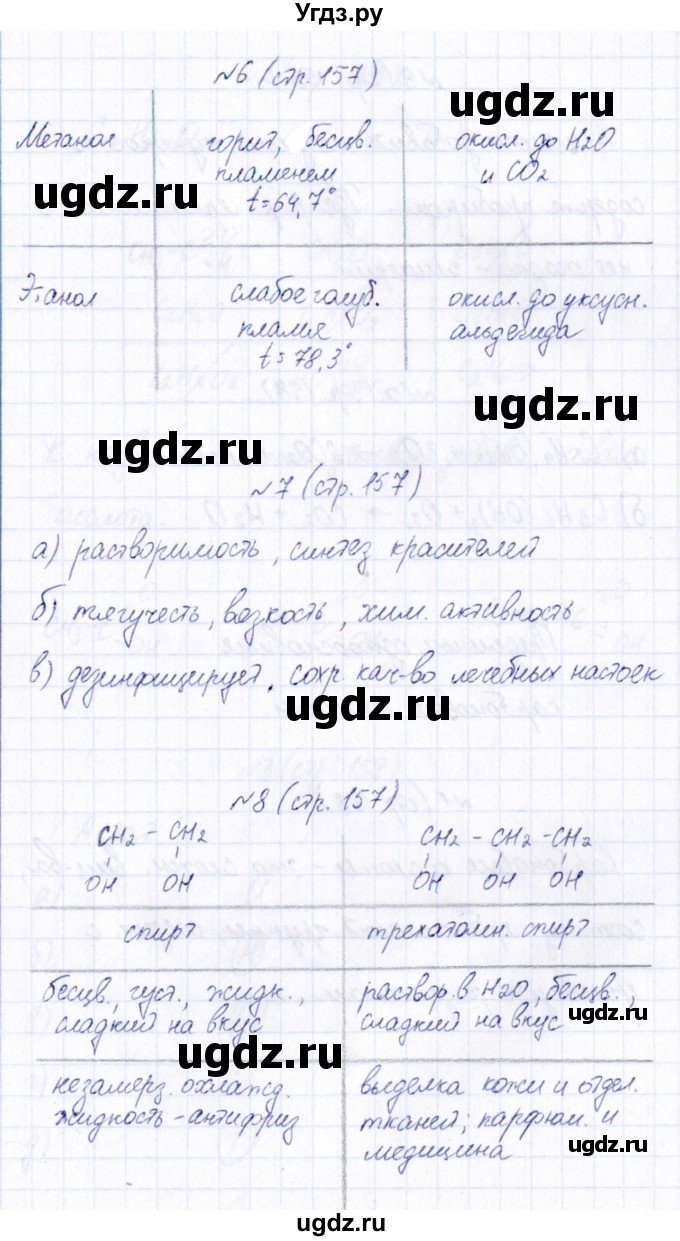 Угдз.ру
№6 (стр. 157)
ugdz.ru
Метанол
горит, бесцв.
пламенем
t=64,7°
окисл. до H2O
и CO2
ugdz.ru
Этанол
слабое голуб.
пламя
t=78,3°
окисл. до уксусн.
альдегида
ugdz.ru
ugdz.ru
№7 (стр. 157)
а) растворимость, синтез красителей
б) тягучесть, вязкость, хим. активность
ugdz.ru
в) дезинфицирует, сохр. кач-во лечебных настоек
ugdz.ru
№8 (стр. 157)
CH2 - CH2
OH OH
CH2 - CH2 - CH2
OH OH OH
спирт
трехатомн. спирт
бесцв., густ., жидк.,
сладкий на вкус
раствор. в H2O, бесцв.,
сладкий на вкус
ugdz.ru
ugdz.ru
незамерз. охлажд.
жидкость - антифриз
выделка кожи и отдел.
тканей; парфюм. и
медицина
ugdz.ru
ugdz.ru